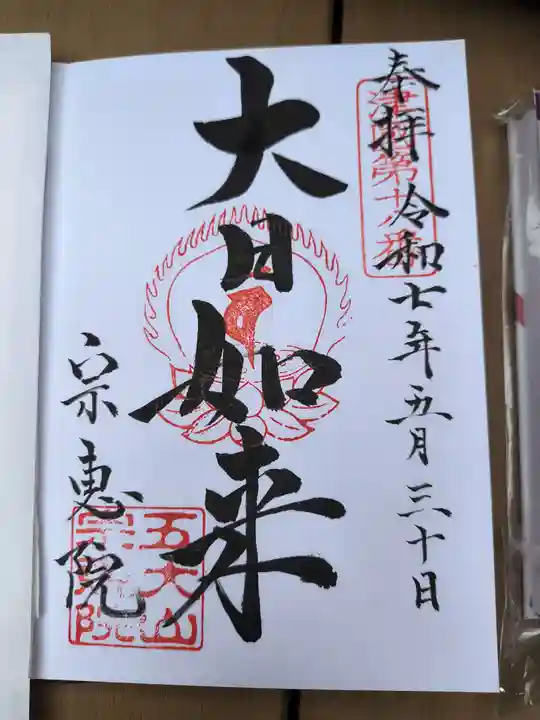 奉拝 令和七年五月三十日
第十八番
大日如来
宗恵院
五大山
宗恵院